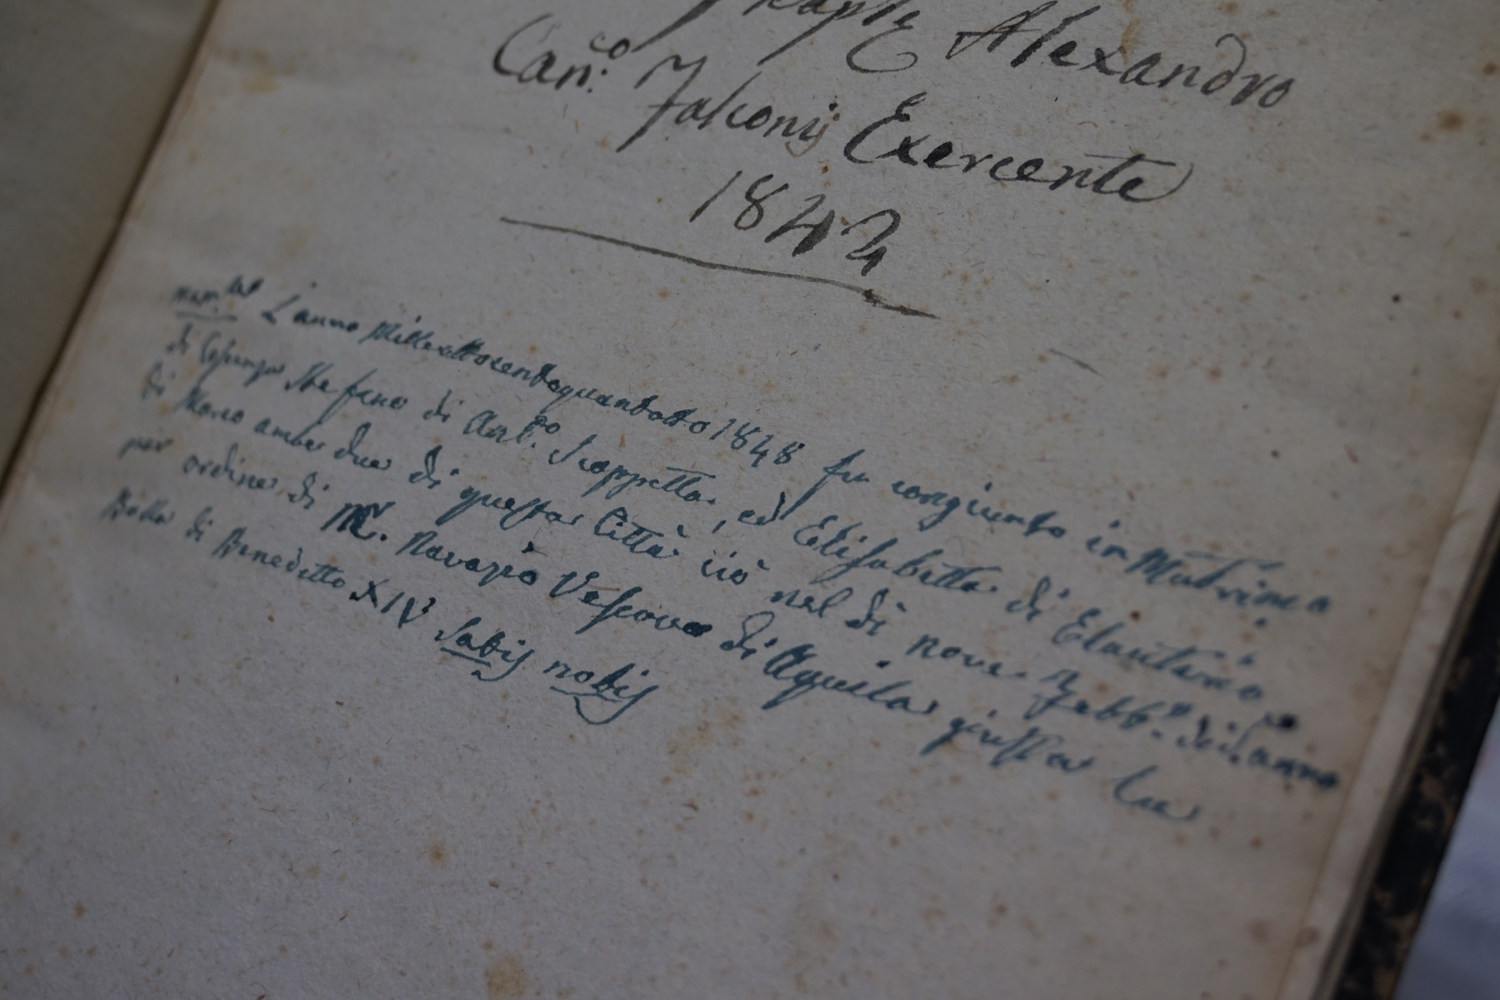 Alexandro
Can.co Falconij Exercente
1842
L'anno Milleottocentoquarantotto 1848 fu congiunto in Matrimo
di Stefano di Scoppetta, ed Elisabetta di Eleuterio
di Marco ambe due di questa Città ciò nel dì nove Febb.o di d. anno
per ordine di M.r Navazio Vescovo di Aquila giusta la
Bolla di Benedetto XIV Satis nobis